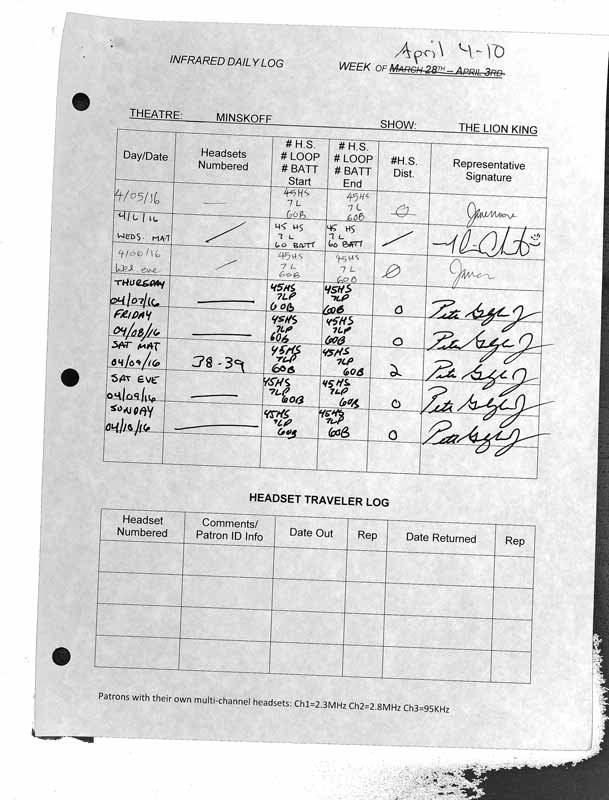 April 4-10
INFRARED DAILY LOG WEEK OF MARCH 28TH – APRIL 3RD
THEATRE: MINSKOFF SHOW: THE LION KING
Day/Date Headsets Numbered # H.S. # LOOP # BATT Start # H.S. # LOOP # BATT End #H.S. Dist. Representative Signature
4/05/16 — 45HS 7L 60B 45HS 7L 60B 0
4/6/16 WEDS. MAT / 45 HS 7 L 60 BATT 45 HS 7 L 60 BATT /
4/06/16 Wed. eve / 45HS 7L 60B 45HS 7L 60B 0
THURSDAY 04/07/16 — 45HS 7LP 60B 45HS 7LP 60B 0
FRIDAY 04/08/16 — 45HS 7LP 60B 45HS 7LP 60B 0
SAT MAT 04/09/16 38-39 45HS 7LP 60B 45HS 7LP 60B 2
SAT EVE 04/09/16 — 45HS 7LP 60B 45HS 7LP 60B 0
SUNDAY 04/10/16 — 45HS 7LP 60B 45HS 7LP 60B 0
HEADSET TRAVELER LOG
Headset Numbered Comments/ Patron ID Info Date Out Rep Date Returned Rep
Patrons with their own multi-channel headsets: Ch1=2.3MHz Ch2=2.8MHz Ch3=95KHz